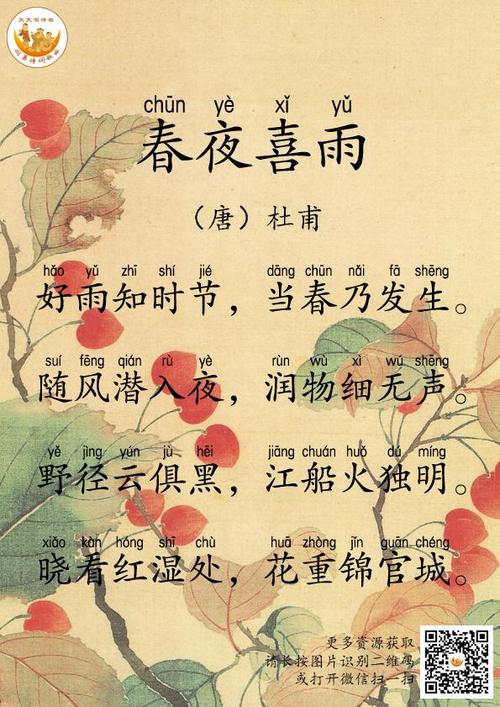 天天唱诗班
chūn yè xǐ yǔ
春夜喜雨
（唐）杜甫
hǎo yǔ zhī shí jié dāng chūn nǎi fā shēng
好雨知时节，当春乃发生。
suí fēng qián rù yè rùn wù xì wú shēng
随风潜入夜，润物细无声。
yě jìng yún jù hēi jiāng chuán huǒ dú míng
野径云俱黑，江船火独明。
xiǎo kàn hóng shī chù huā zhòng jǐn guān chéng
晓看红湿处，花重锦官城。
更多资源获取
请长按图片识别二维码
或打开微信扫一扫